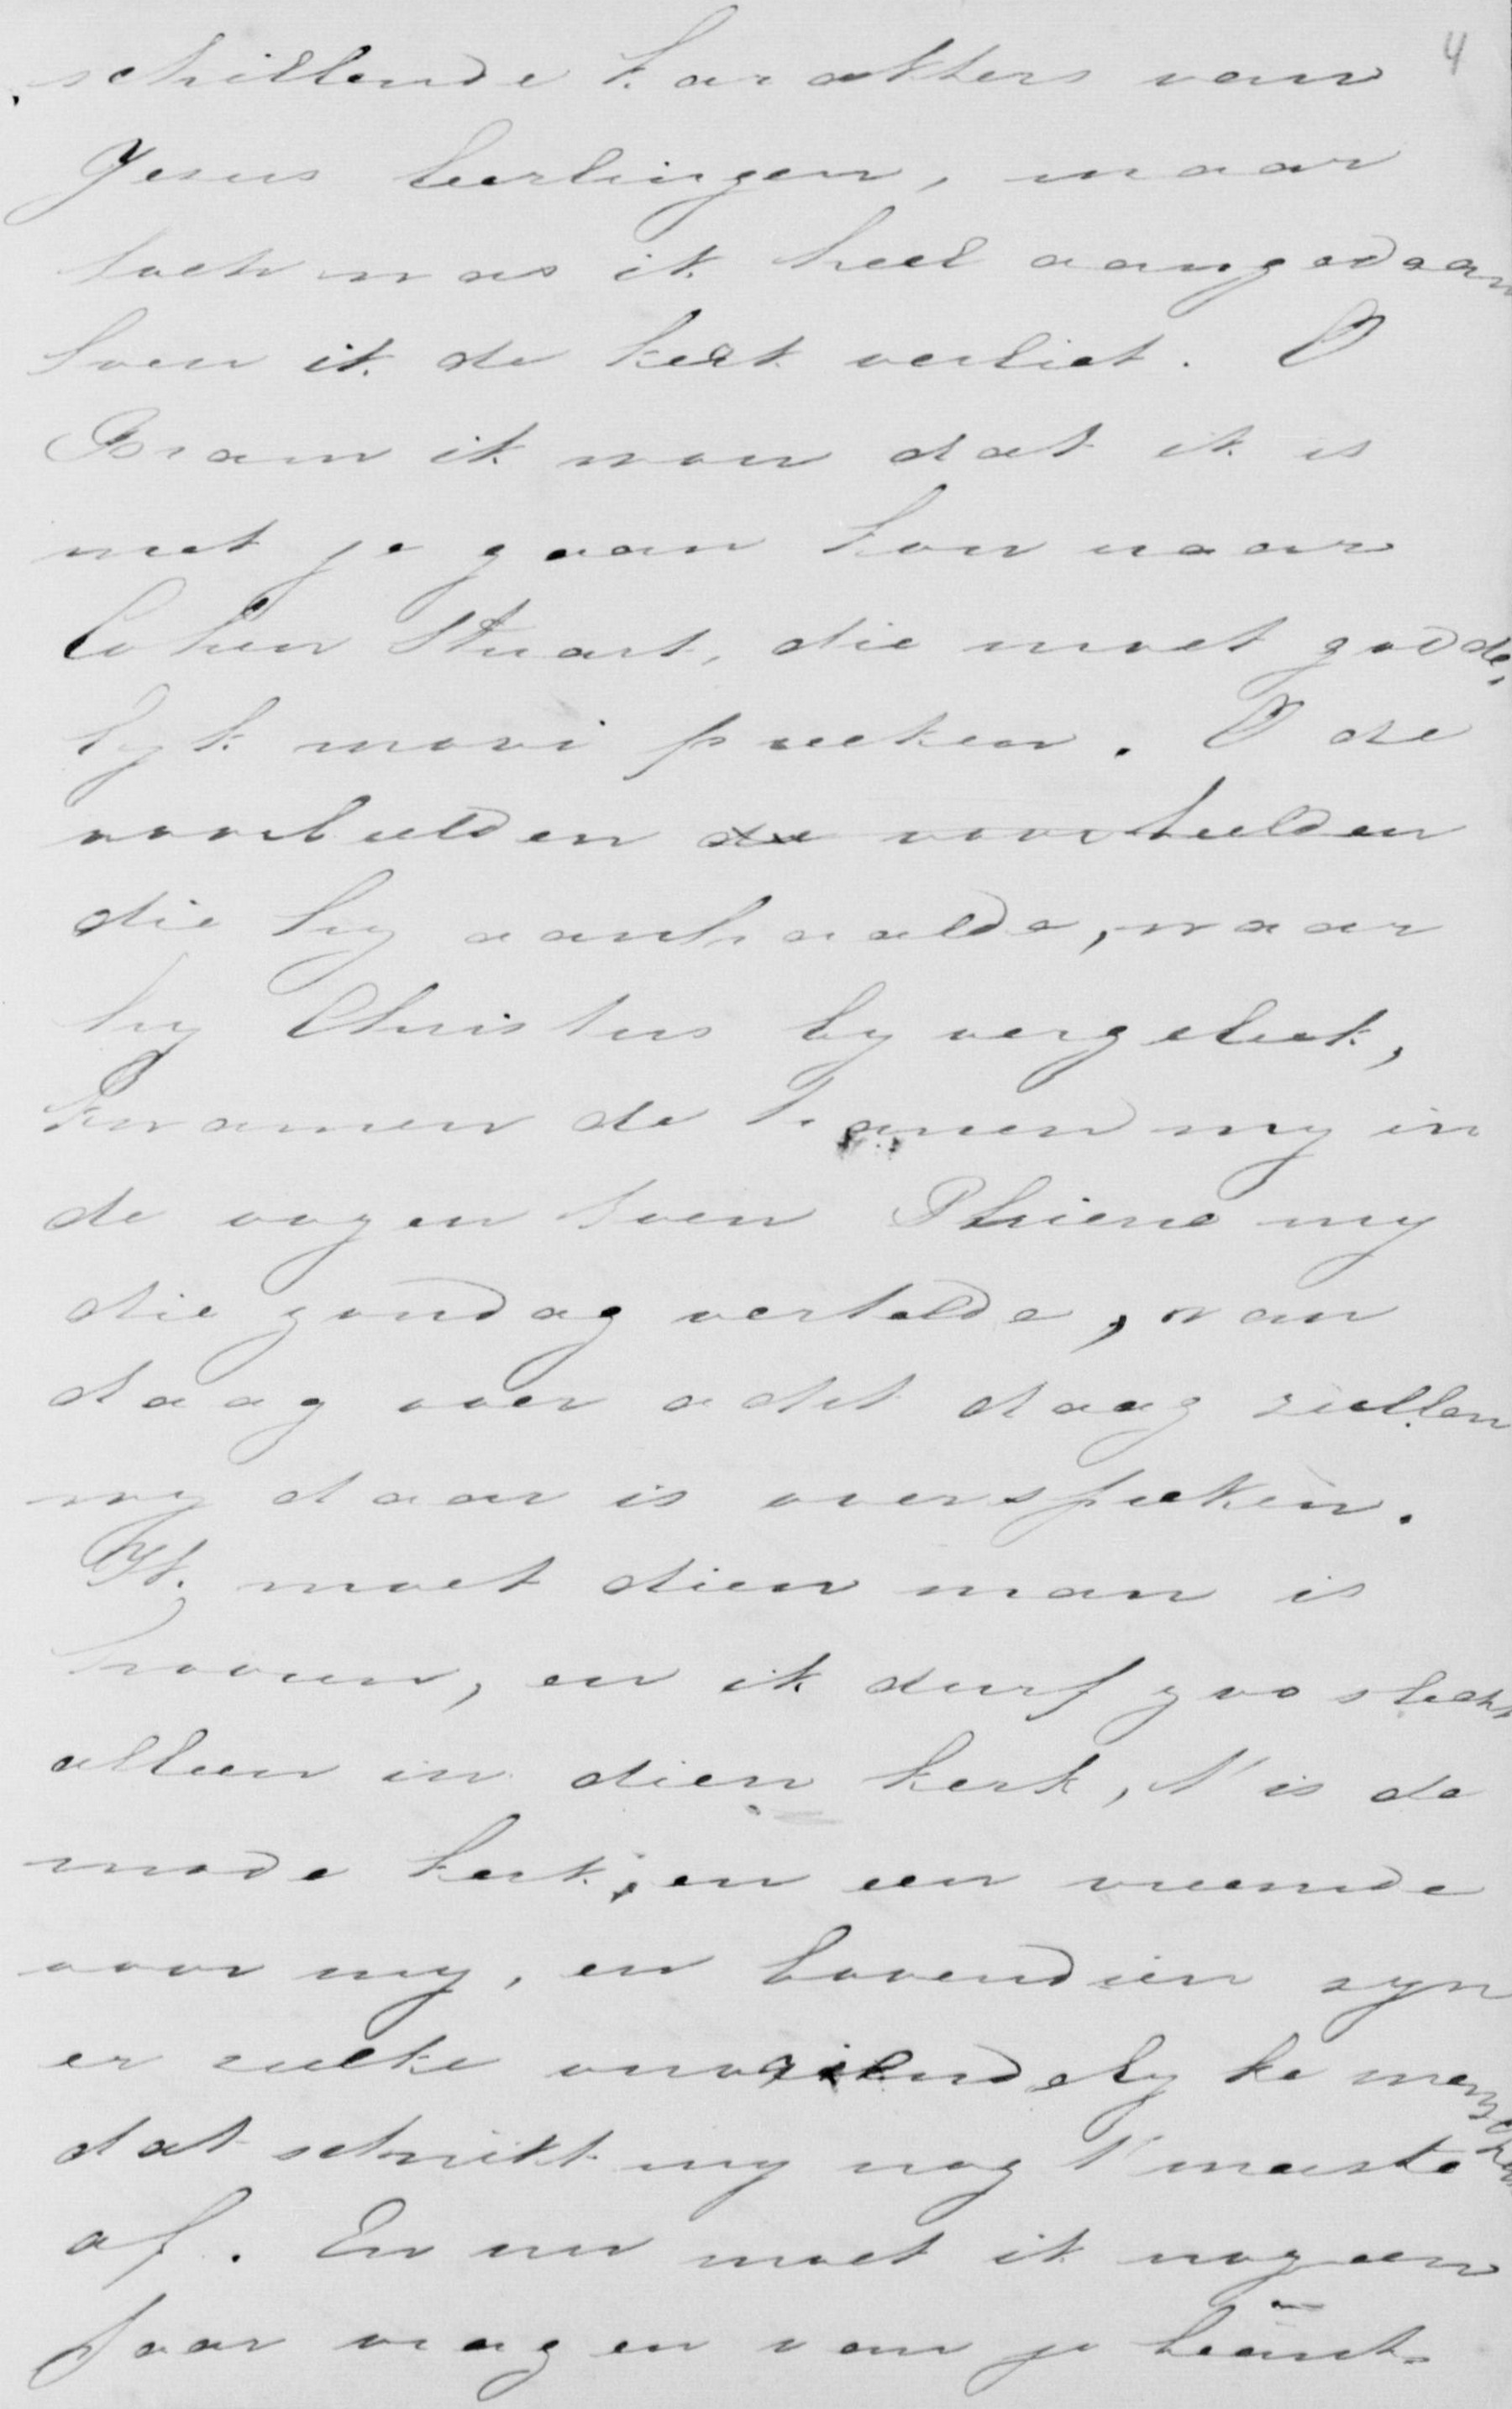 4
schillende karakters van
Jesus leerlingen, maar
toch was ik heel aangedaan
toen ik de kerk verliet. O
Bram ik wou dat ik is
met je gaan kon naar
Cohen Stuart, die moet godde,
lyk mooi preeken. O de
voorbeelden de voorbeelden
die hy aanhaalde, waar
hy Christus by vergeleek,
kwamen de tranen my in
de oogen toen Phiene my
die zondag vertelde, van
daag over acht daag zullen
wy daar is over spreken.
Ik moet dien man is
hooren, en ik durf zoo slecht
alleen in dien kerk, t' is de
mode kerk, en een vreemde
voor my, en bovendien zyn
er zulke onvriendelyke menschen
dat schrikt my nog t' meeste
af. En nu moet ik nog een
paar vragen van je beant-